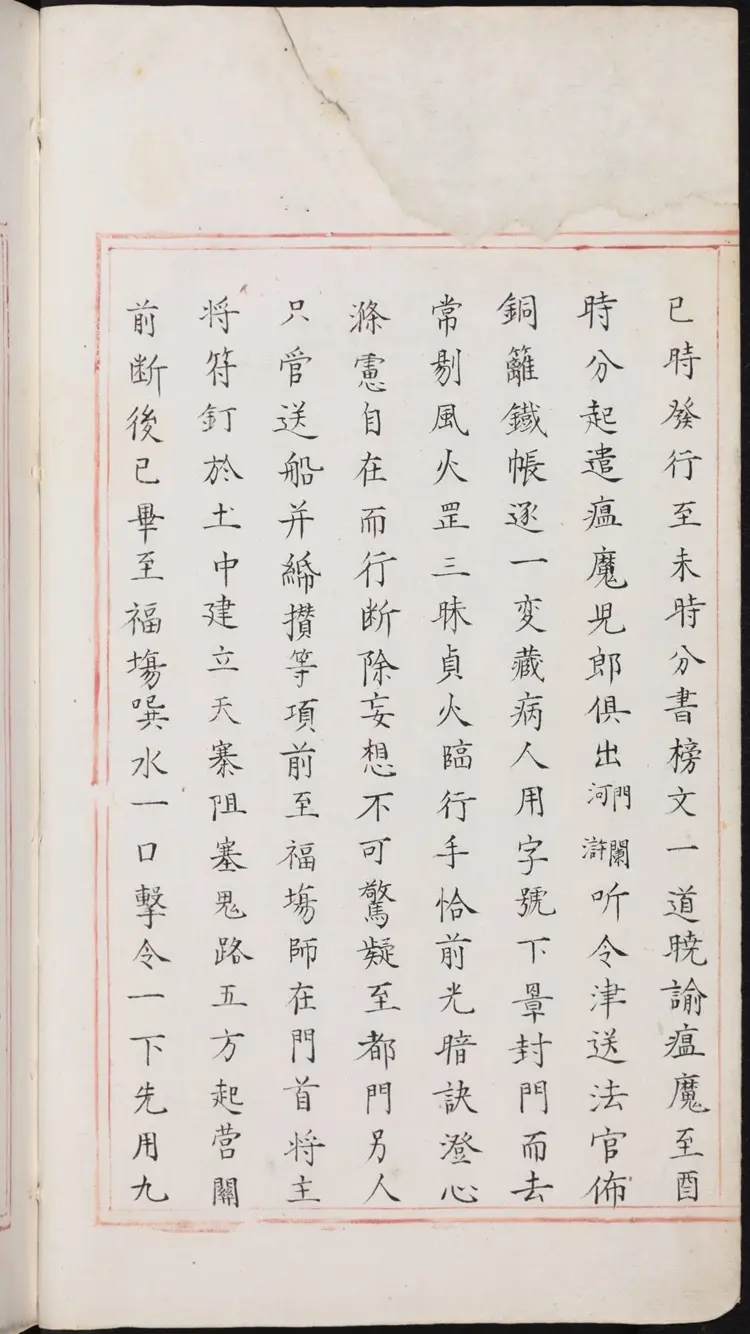 已時發行至未時分書榜文一道曉諭瘟魔至酉
時分起遣瘟魔児郎俱出門闌河滸听令津送法官佈
銅籬鐵帳逐一変藏病人用字號下罩封門而去
常剔風火罡三昧貞火臨行手恰前光暗訣澄心
滌慮自在而行断除妄想不可驚疑至都門另人
只管送船并綿攢等項前至福塲師在門首将主
将符釘於土中建立天寨阻塞鬼路五方起营關
前断後已畢至福塲噀水一口擊令一下先用九